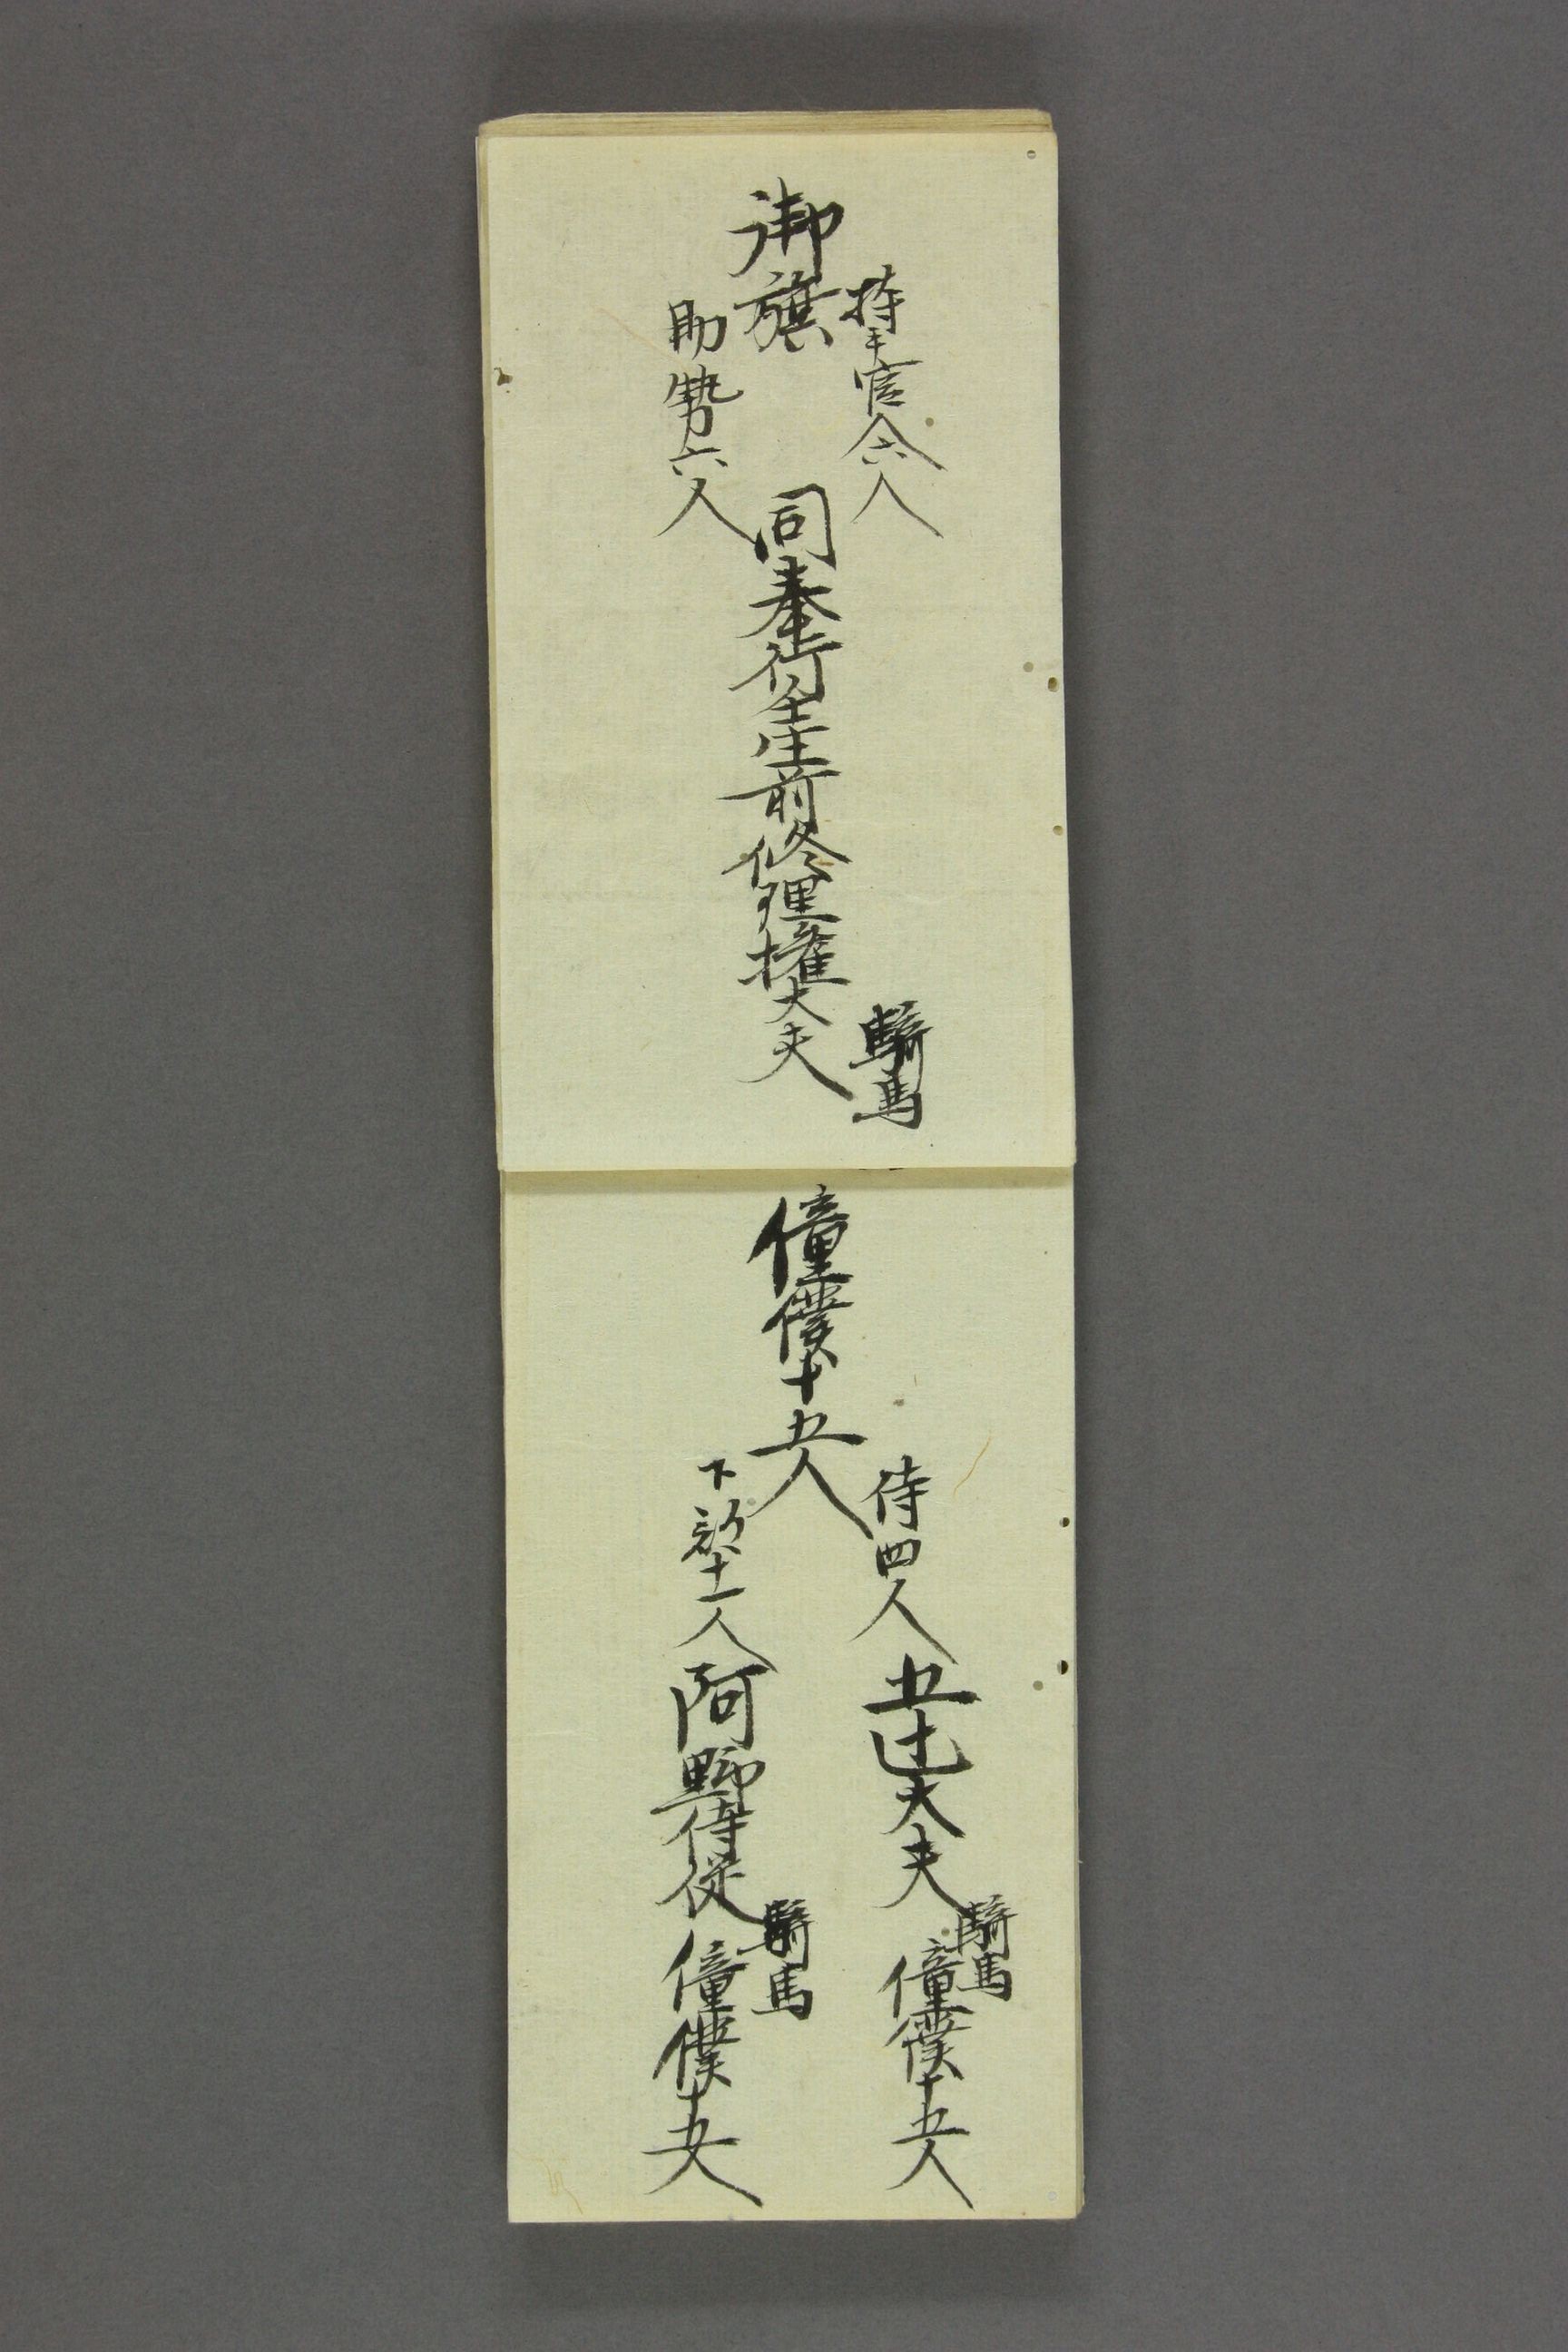 御旗
持手官人六人
助勢六人
同奉行壬生前修理権大夫
騎馬
僮僕十五人
侍四人
下部十一人
五辻大夫
騎馬
僮僕十五人
阿野侍従
騎馬
僮僕十五人